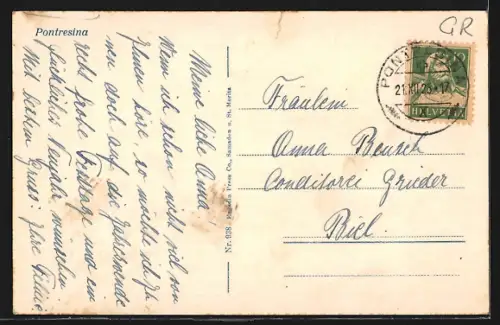 Pontresina
Meine liebe Anna!
Wenn ich schon nicht viel von
Ihnen höre, so möchte ich Ih-
nen doch auf die Jahreswende
recht frohe Festtage und ein
glückliches Neujahr wünschen
Mit bestem Gruss: Ihre
Nr. 938 Press Co., Samaden u. St. Moritz
GR
21.XII.23-17
HELVETIA
Fräulein
Anna Beusch
Conditorei Grieder
Biel.